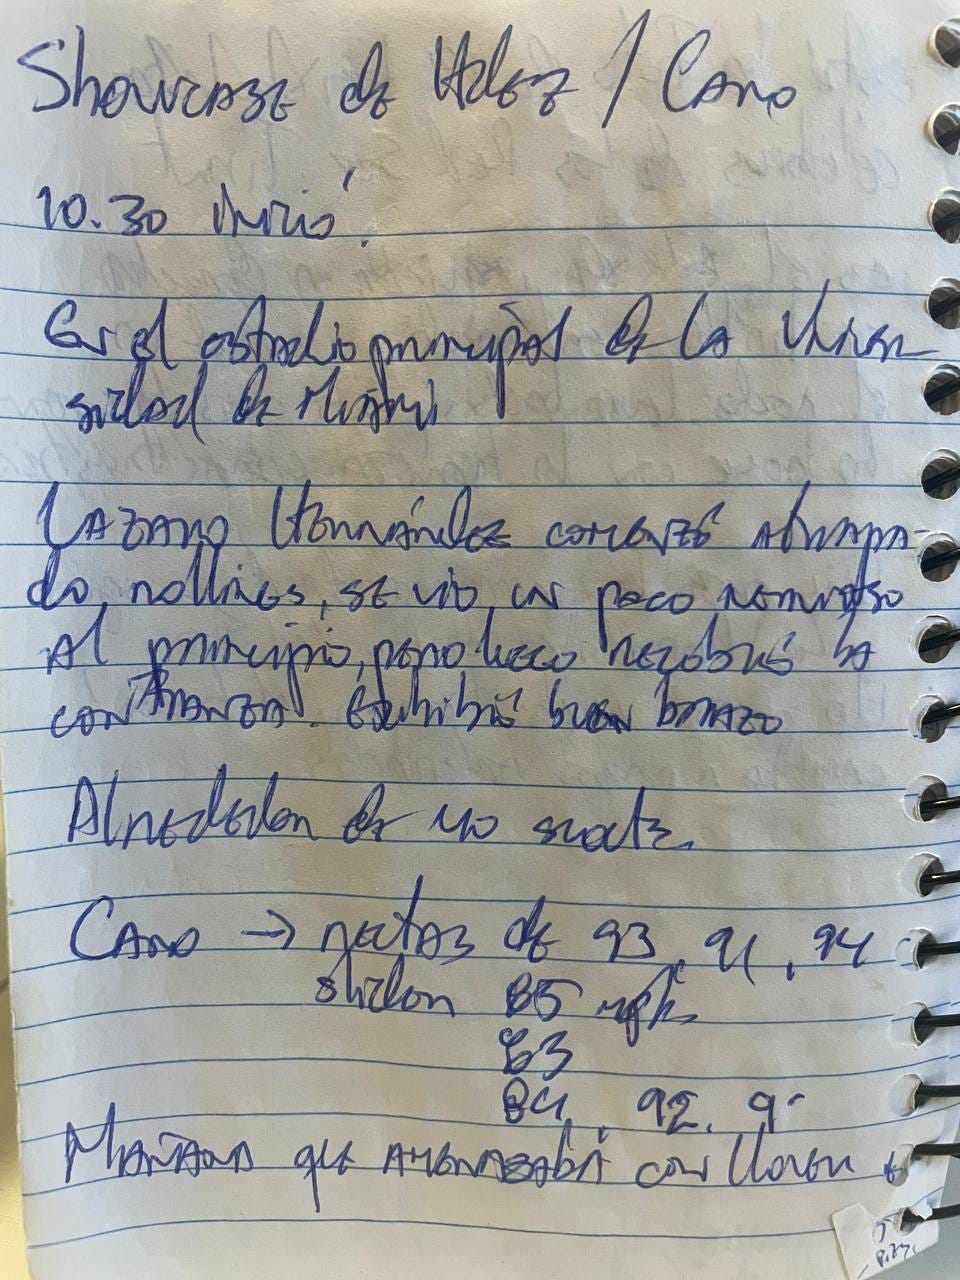 Showcase de Hdez / Cano
10.30 inició.
En el estadio principal de la Univer
sidad de Miami
Lazaro Hernández comenzó atrapa-
do rollings, se vio un poco nervioso
al principio, pero luego recobró la
confianza. Exhibió buen brazo
Alrededor de 40 scouts.
Cano → rectas de 93, 91, 94
slider 85 mph
83
84, 92, 9
Mañana que amenazaba con llover